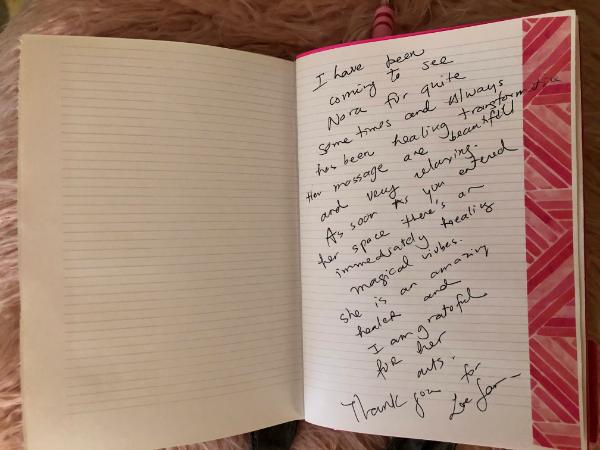 I have been
coming to see
Nora for quite
some times and Always
has been healing transformative
Her massage are beautiful
and very relaxing.
As soon As you entered
her space there's an
immediately healing
magical vivbes.
She is an amazing
healer and
I am grateful
for her
arts.
Thank you for